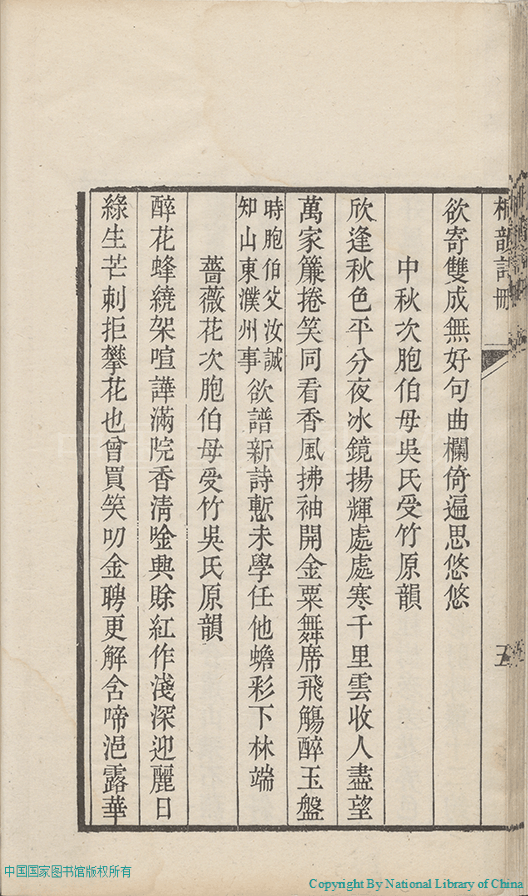 冊
欲寄雙成無好句曲欄倚遍思悠悠
中秋次胞伯母吳氏受竹原韻
欣逢秋色平分夜冰鏡揚輝處處寒千里雲收人盡望
萬家簾捲笑同看香風拂袖開金粟舞席飛觴醉玉盤
時胞伯父汝誠
知山東濮州事
欲譜新詩慙未學任他蟾彩下林端
薔薇花次胞伯母受竹吳氏原韻
醉花蜂繞架喧譁滿院香清唫興賒紅作淺深迎麗日
綠生芒刺拒攀花也曾買笑叨金聘更解含啼浥露華
中国国家图书馆版权所有
Copyright By National Library of China